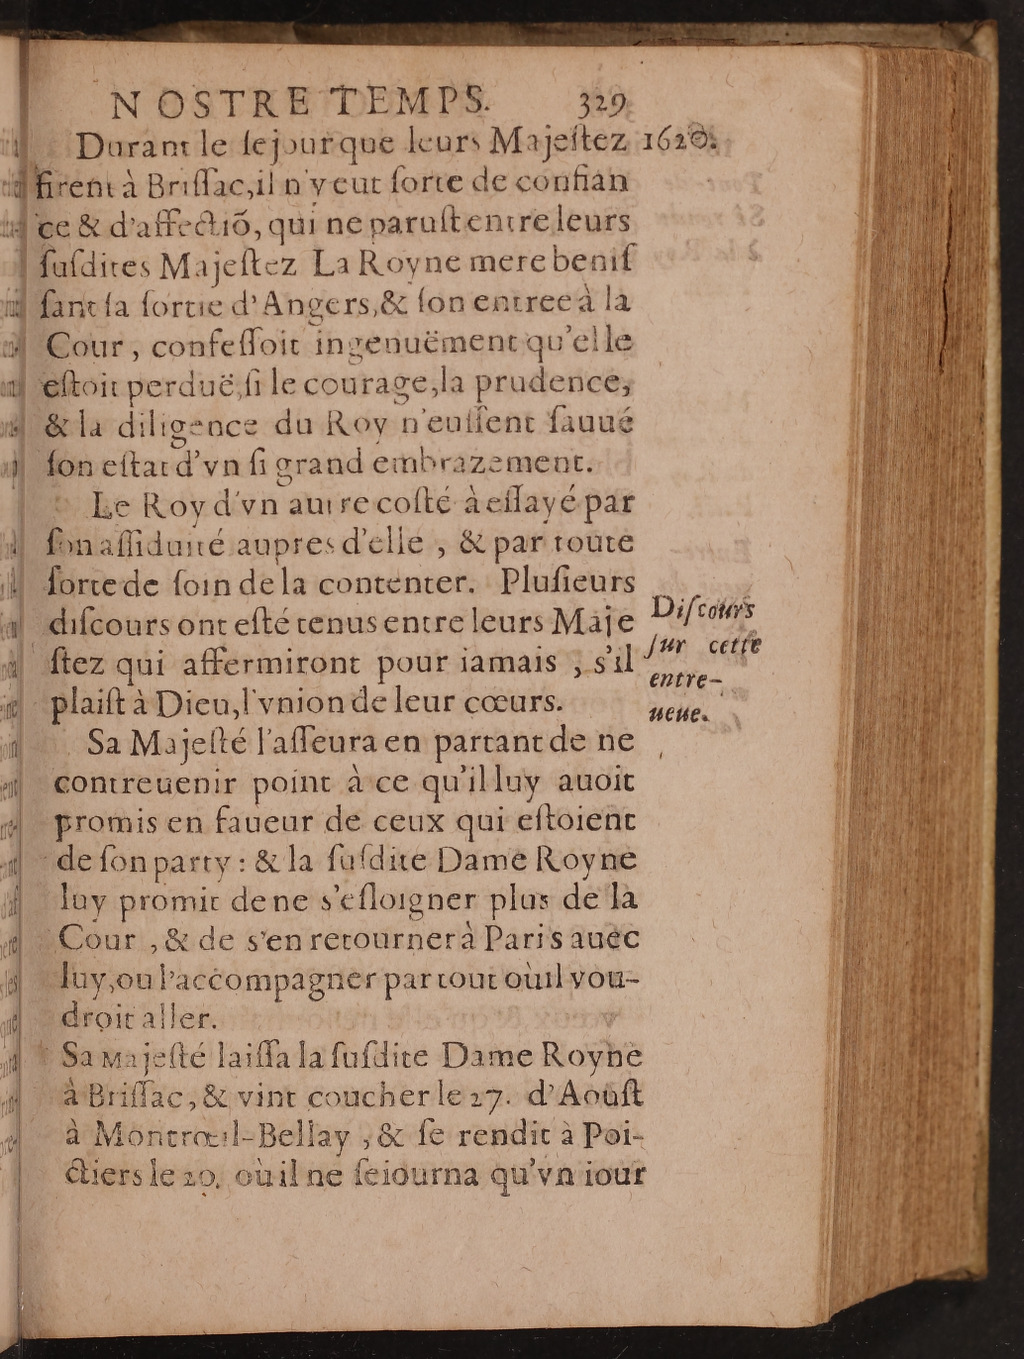 NOSTRE TEMPS. 329
Durant le ſejour que leurs Majeſtez 1620.
firent à Briſſac, il n'y eut ſorte de confian
ce & d'affectiõ, qui ne paruſt entre leurs
ſuſdites Majeſtez La Royne mere beniſ
ſant ſa ſortie d'Angers, & ſon entree à la
Cour, confeſſoit ingenuëment qu'elle
eſtoit perduë, ſi le courage, la prudence,
& la diligence du Roy n'euſſent ſauué
ſon eſtat d'vn ſi grand embrazement.
Le Roy d'vn autre coſté à eſſayé par
ſon aſſiduité aupres d'elle, & par toute
ſorte de ſoin de la contenter. Pluſieurs
diſcours ont eſté tenus entre leurs Maje
ſtez qui affermiront pour iamais, s'il
plaiſt à Dieu, l'vnion de leur cœurs.
Diſcours
ſur cette
entre-
ueuë.
Sa Majeſté l'aſſeura en partant de ne
contreuenir point à ce qu'il luy auoit
promis en faueur de ceux qui eſtoient
de ſon party : & la ſuſdite Dame Royne
luy promit de ne s'eſloigner plus de la
Cour, & de s'en retourner à Paris auec
luy, ou l'accompagner par tout où il vou-
droit aller.
Sa Majeſté laiſſa la ſuſdite Dame Royne
à Briſſac, & vint coucher le 27. d'Aouſt
à Montrœil-Bellay, & ſe rendit à Poi-
ctiers le 20, où il ne ſeiourna qu'vn iour